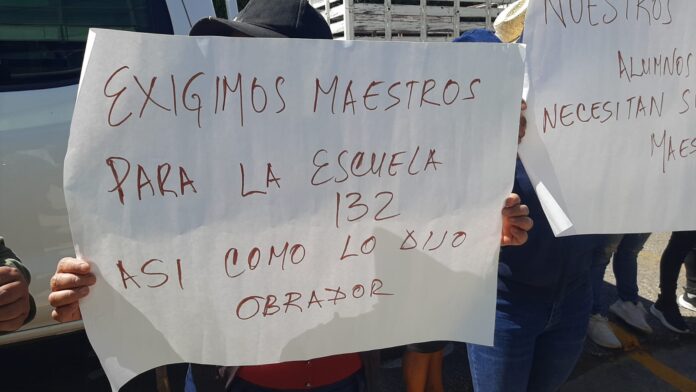 EXIGIMOS MAESTROS
PARA LA ESCUELA
132
ASI COMO LO DIJO
OBRADOR
NUESTROS
ALUMNOS
NECESITAN S
MAES